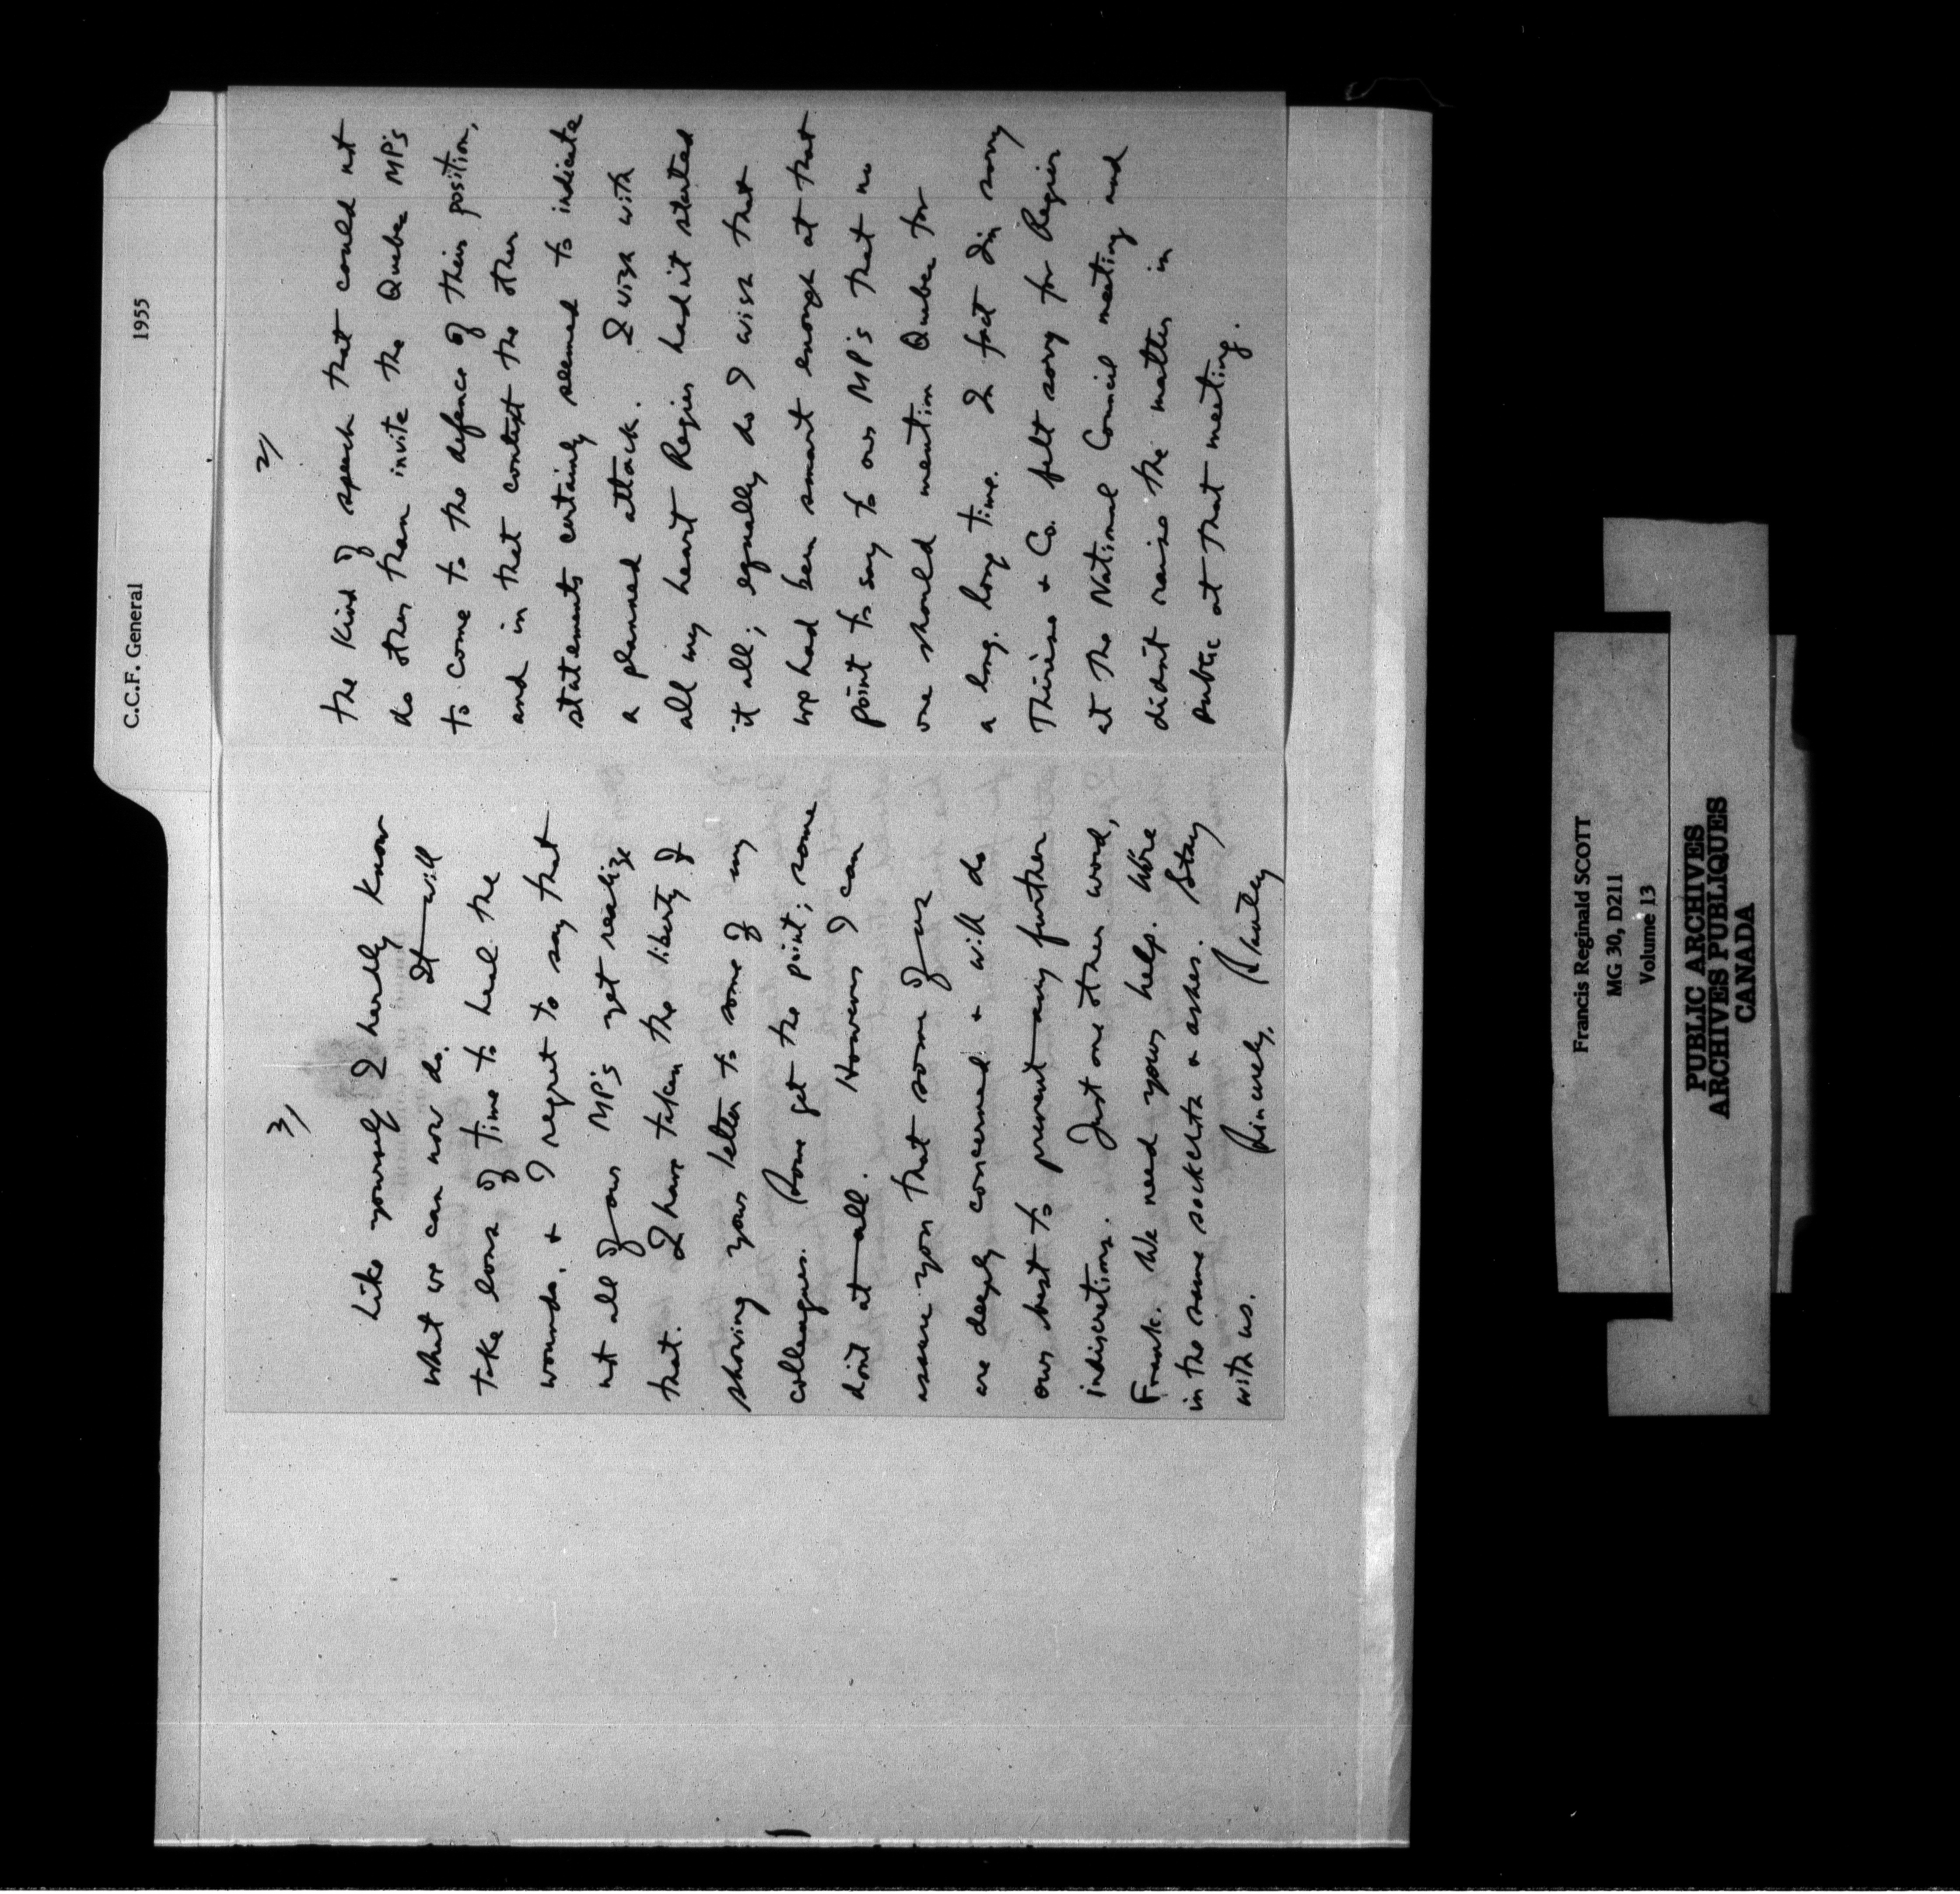 C.C.F. General 1955
2/
the kind of speech that could not
do other than invite the Quebec MP's
to come to the defence of their position,
and in that context the other
statements certainly seemed to indicate
a planned attack. I wish with
all my heart Regier hadn't started
it all; equally do I wish that
we had been smart enough at that
point to say to our MP's that no
one should mention Quebec for
a long, long time. In fact I'm sorry
Thérèse & Co. felt sorry for Regier
at the National Council meeting and
didn't raise the matter in
public at that meeting.
3/
Like yourself I hardly know
what we can now do. It will
take lons of time to heal the
wounds, & I regret to say that
not all of our MP's yet realize
that. I have taken the liberty of
showing your letter to some of my
colleagues. Some get the point; some
don't at all. However I can
assure you that some of us
are deeply concerned & will do
our best to prevent any further
indiscretions. Just one other word,
Frank. We need your help. We're
in the same sackcloth & ashes. Stay
with us.
Sincerely, Stanley
Francis Reginald SCOTT
MG 30, D211
Volume 13
PUBLIC ARCHIVES
ARCHIVES PUBLIQUES
CANADA